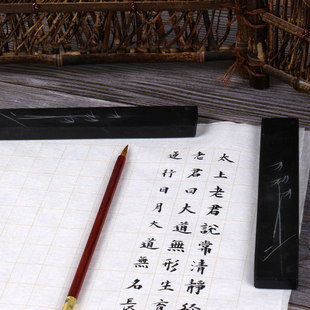 太上老君說常清靜經
老君曰大道無形生育
運行日月大道無名長